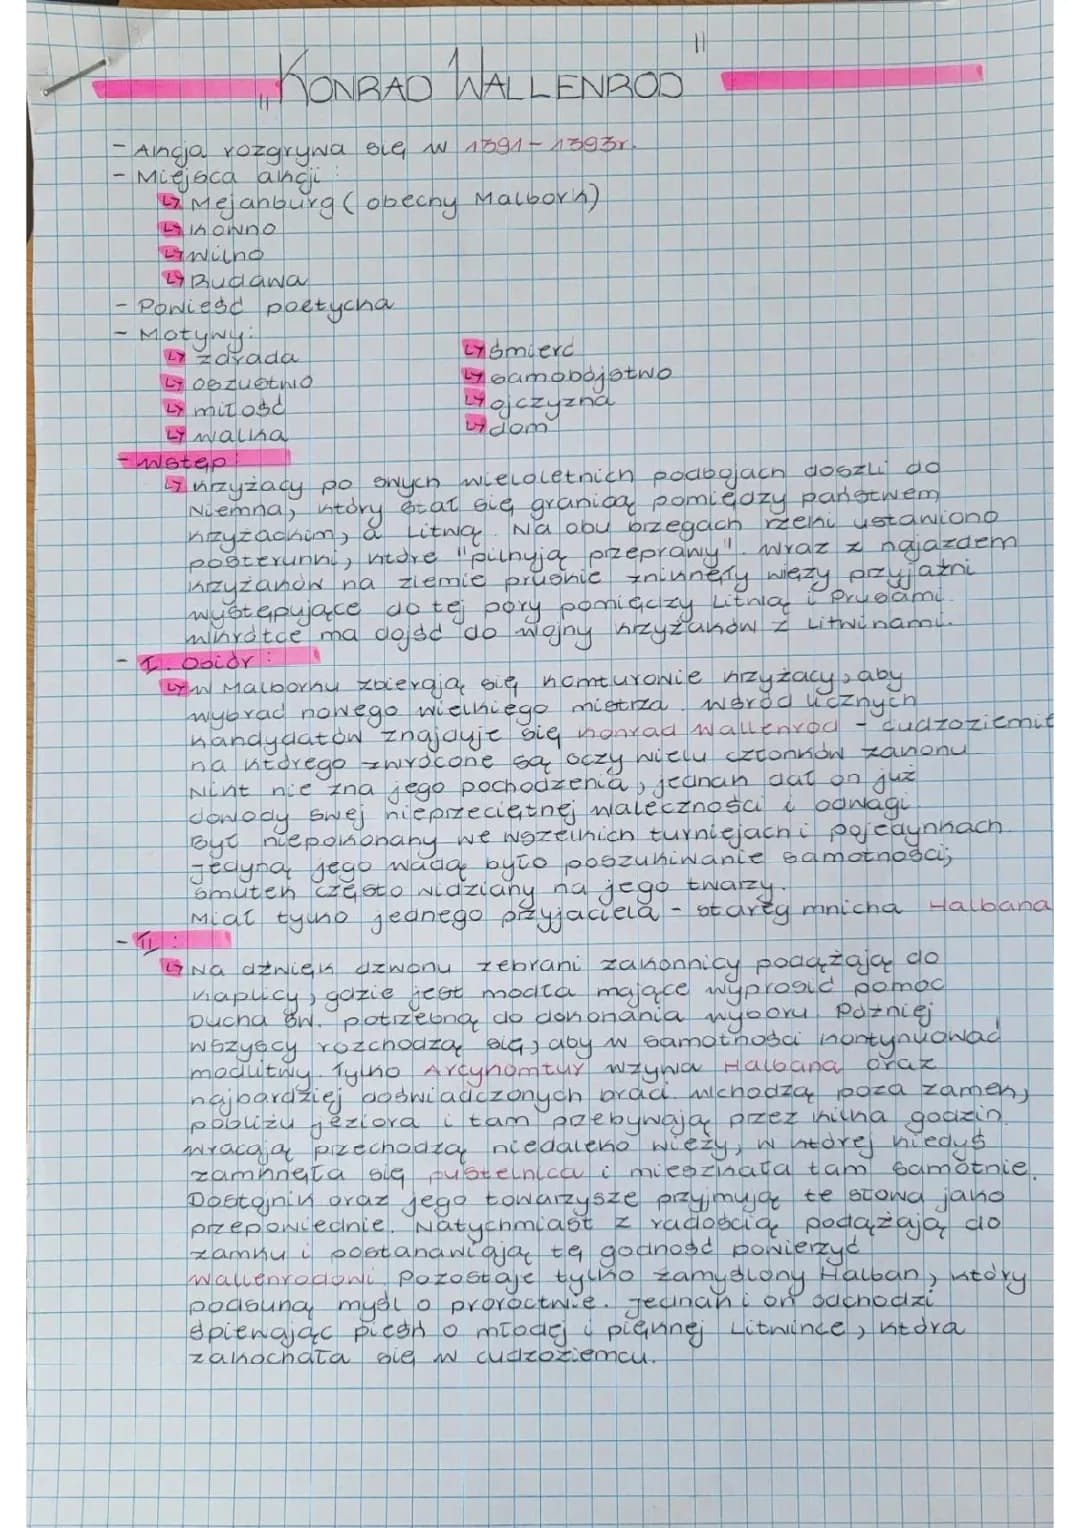 „KONRAD WALLENROD"
- Akcja rozgrywa się w 1391-1393r.
- Miejsca akcji:
↳ Mejanburg (obecny Malbork)
↳ Kowno
↳ Wilno
↳ Budawa
- Powieść poetycka
- Motywy:
↳ zdrada
↳ oszustwo
↳ miłość
↳ walka
↳ śmierć
↳ samobójstwo
↳ ojczyzna
↳ dom
- Wstęp:
↳ Krzyżacy po swych wieloletnich podbojach doszli do
Niemna, który stał się granicą pomiędzy państwem
krzyżackim, a Litwą. Na obu brzegach rzeki ustawiono
posterunki, które "pilnują przeprawy". Wraz z najazdem
krzyżaków na ziemie pruskie zniknęły więzy przyjaźni
występujące do tej pory pomiędzy Litwą i Prusami.
Wkrótce ma dojść do wojny krzyżaków z Litwinami.
- I. Obiór:
↳ W Malborku zbierają się komturowie krzyżacy, aby
wybrać nowego wielkiego mistrza. Wśród licznych
kandydatów znajduje się Konrad Wallenrod - cudzoziemie
na którego zwrócone są oczy wielu członków zakonu
Nikt nie zna jego pochodzenia, jednak dał on już
dowody swej nieprzeciętnej waleczności i odwagi
Był niepokonany we wszelkich turniejach i pojedynkach.
Jedyną jego wadą było poszukiwanie samotności,
smutek często widziany na jego twarzy.
Miał tylko jednego przyjaciela - stareg mnicha Halbana
- II:
↳ Na dźwięk dzwonu zebrani zakonnicy podążają do
kaplicy, gdzie jest modła mające wyprosić pomoc
Ducha Św. potrzebną do dokonania wyboru. Później
wszyscy rozchodzą się, aby w samotności kontynuować
modlitwy. Tylko Arcykomtur wzywa Halbana oraz
najbardziej doświadczonych braci. Wchodzą poza zamek,
pobliżu jeziora i tam przebywają przez kilka godzin.
Wracają przechodzą niedaleko wieży, w której kiedyś
zamknęła się pustelnica i mieszkała tam samotnie.
Dostojnik oraz jego towarzysze przyjmują te słowa jako
przepowiednie. Natychmiast z radością podążają do
zamku i postanawiają tę godność powierzyć
Wallenrodowi. Pozostaje tylko zamyślony Halban, który
podsuną myśl o proroctwie. Jednak i on odchodzi
śpiewając pieśń o młodej i pięknej Litwince, która
zakochała się w cudzoziemcu.